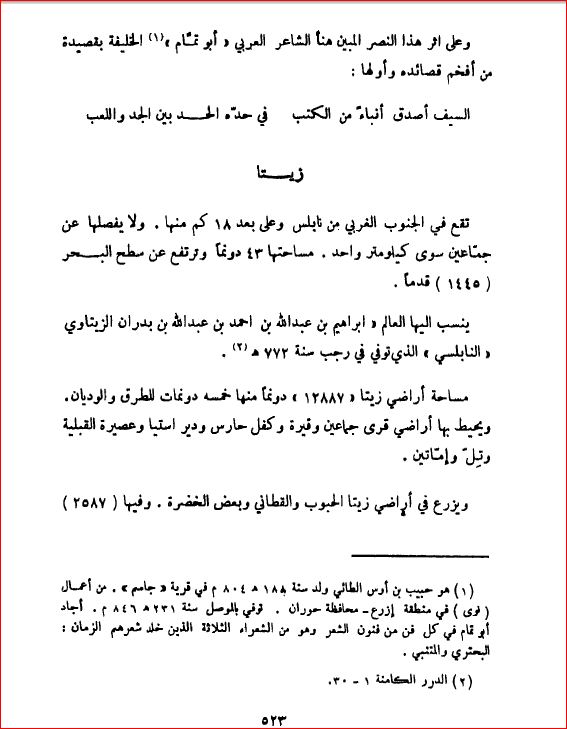 وعلى اثر هذا النصر المبين هنأ الشاعر العربي « أبو تمّام »(١) الخليفة بقصيدة
من أفخم قصائده وأولها :
السيف أصدق أنباءً من الكتب في حدّه الحد بين الجد واللعب
زيتا
تقع في الجنوب الغربي من نابلس وعلى بعد ١٨ كم منها . ولا يفصلها عن
جمّاعين سوى كيلومتر واحد . مساحتها ٤٣ دونماً وترتفع عن سطح البحر
( ١٤٤٥ ) قدماً .
ينسب اليها العالم « ابراهيم بن عبدالله بن احمد بن عبدالله بن بدران الزيتاوي
« النابلسي » الذي توفي في رجب سنة ٧٧٢ ه (٢) .
مساحة أراضي زيتا « ١٢٨٨٧ » دونماً منها خمسه دونمات للطرق والوديان.
ويحيط بها أراضي قرى جماعين وقيرة وكفل حارس ودير استيا وعصيرة القبلية
وتِلّ وإمّاتين .
ويزرع في أراضي زيتا الحبوب والقطاني وبعض الخضرة . وفيها ( ٢٥٨٧ )
(١) هو حبيب بن أوس الطائي ولد سنة ١٨٨ ه ٨٠٤ م في قرية « جاسم » . من أعمال
( نوى ) في منطقة إزرع - محافظة حوران . توفي بالموصل سنة ٢٣١ ه ٨٤٦ م . أجاد
أبو تمام في كل فن من فنون الشعر وهو من الشعراء الثلاثة الذين خلد شعرهم الزمان :
البحتري والمتنبي .
(٢) الدرر الكامنة ١ - ٣٠.
٥٢٣